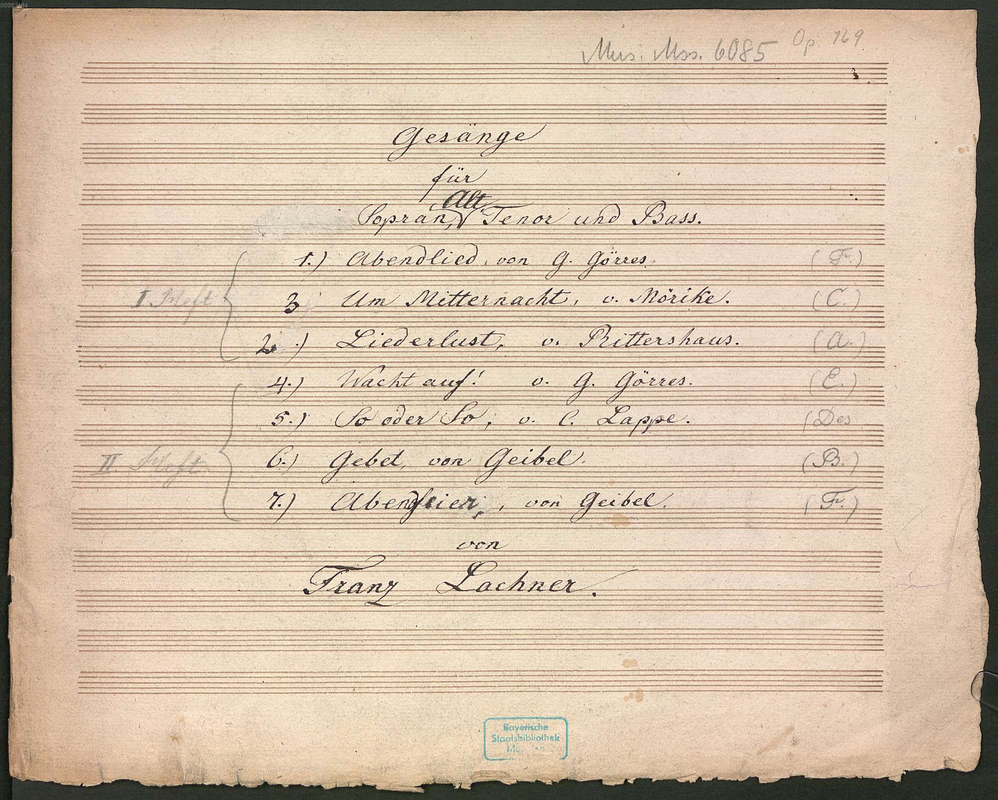 Mus. Mss. 6085 Op. 169
Gesänge
für
Alt
Sopran, Tenor und Bass.
1.) Abendlied, von G. Görres. (F.)
I Heft
3 Um Mitternacht, v. Mörike. (C.)
2.) Liederlust, v. Rittershaus. (A.)
4.) Wacht auf! v. G. Görres. (E.)
5.) So oder So, v. C. Lappe. (Des
II Heft
6.) Gebet, von Geibel. (B.)
7.) Abendfeier, von Geibel. (F.)
von
Franz Lachner.
Bayerische
Staatsbibliothek